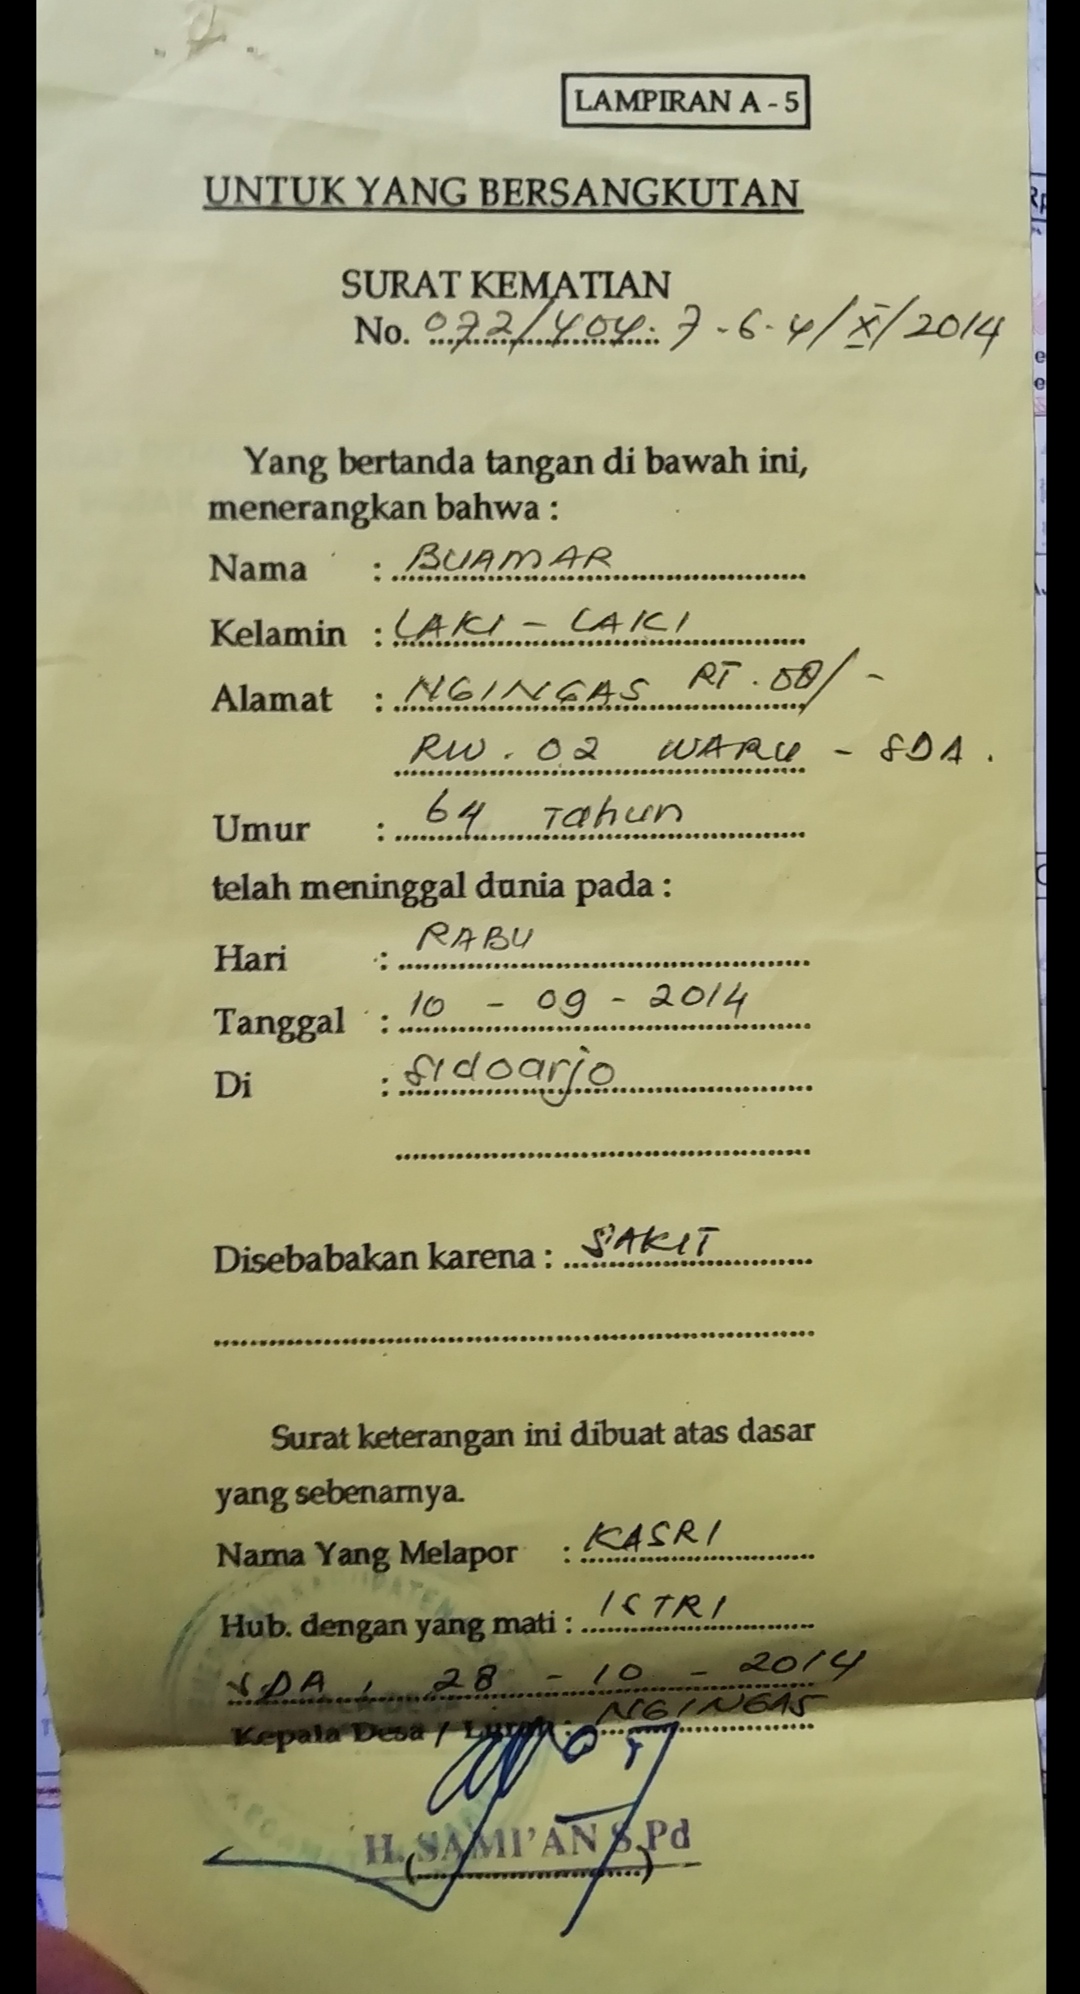 LAMPIRAN A - 5
UNTUK YANG BERSANGKUTAN
SURAT KEMATIAN
No. 072/404.7-6-4/X/2014
Yang bertanda tangan di bawah ini,
menerangkan bahwa :
Nama : BUAMAR
Kelamin : LAKI - LAKI
Alamat : NGINGAS RT. 08/-
RW. 02 WARU - SDA.
Umur : 64 Tahun
telah meninggal dunia pada :
Hari : RABU
Tanggal : 10 - 09 - 2014
Di : Sidoarjo
Disebabakan karena : SAKIT
Surat keterangan ini dibuat atas dasar
yang sebenarnya.
Nama Yang Melapor : KASRI
Hub. dengan yang mati : ISTRI
SDA, 28 - 10 - 2014
Kepala Desa / Lurah : NGINGAS
H. SAMI'AN S.Pd